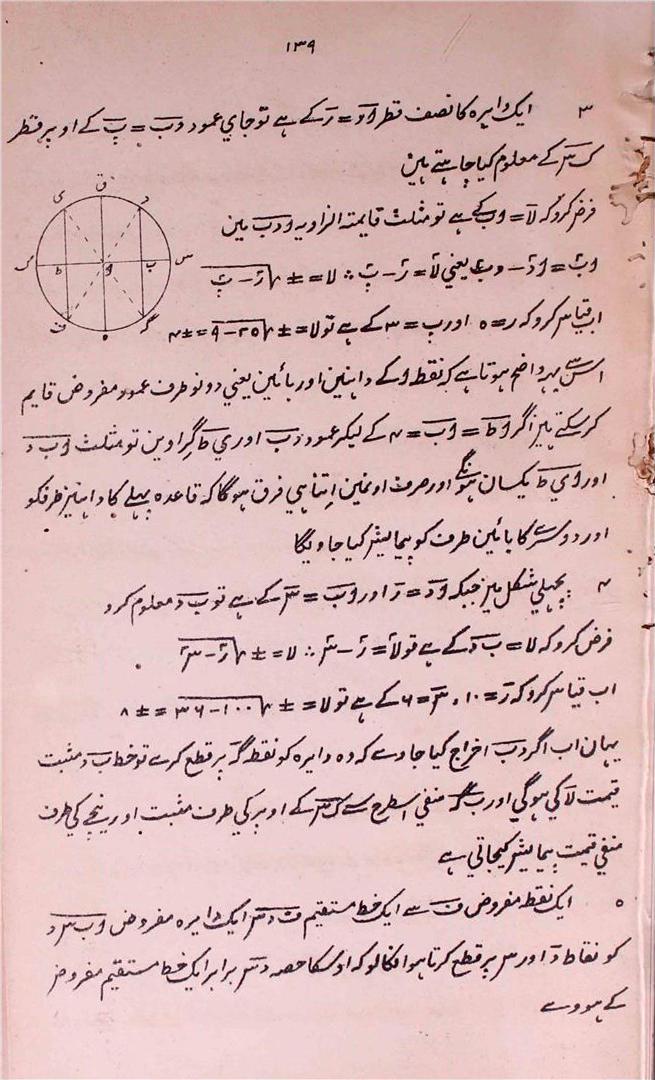 ۱۳۹
۳ ایک دایرہ کا نصف قطر و د = ر کے ہے تو جاي عمود د ب = پ کے اوپر قطر
ک س کے معلوم کیا چاہتے ہین
فرض کرو کہ لا = و ب کے ہے تو مثلث قایمۃ الزاویہ و د ب مین
یعني لا۲ = ر۲ - پ۲ ∴ لا = ± √ر۲ - پ۲
اب قیاس کرو کہ ر = ۵ اور پ = ۳ کے ہے تو لا = ± √۲۵ - ۹ = ± ۴
اس سے یہہ واضح ہوتا ہے کہ نقطہ و کے داہنین اور بائین یعني دونو طرف عمود مفروض قایم
کر سکتے ہین اگر و ط = و ب = ۴ کے لیکر عمود د ب اور ي ط گراوین تو مثلث و ب د
اور و ي ط یکسان ہونگے اور صرف اونمین اتنا ہي فرق ہوگا کہ قاعدہ پہلے کا داہنیں طرفکو
اور دوسرے کا بائین طرف کو پیمایش کیا جاویگا
۴ پچہلي شکل مین جبکہ و د = ر اور و ب = س کے ہے تو ب د معلوم کرو
فرض کرو کہ لا = ب د کے ہے تو لا۲ = ر۲ - س۲ ∴ لا = ± √ر۲ - س۲
اب قیاس کرو کہ ر = ۱۰، س = ۶ کے ہے تو لا = ± √۱۰۰ - ۳۶ = ± ۸
یہان اب اگر د ب اخراج کیا جاوے کہ وہ دایرہ کو نقطہ گ پر قطع کرے تو خط ب د مثبت
قیمت لا کي ہوگي اور ب گ منفي اسطرح سے ک س کے اوپر کي طرف مثبت اور نیچے کي طرف
منفي قیمت پیمایش کیجاتي ہے
۵ ایک نقطہ مفروض ف سے ایک خط مستقیم ف د س ایک دایرہ مفروض و ب س د
کو نقاط د اور س پر قطع کرتا ہوا نکالو کہ اوسکا حصہ د س برابر ایک خط مستقیم مفروض
کے ہووے
ق
ي
د
ک
ط
و
ب
س
ف
گ
ہ